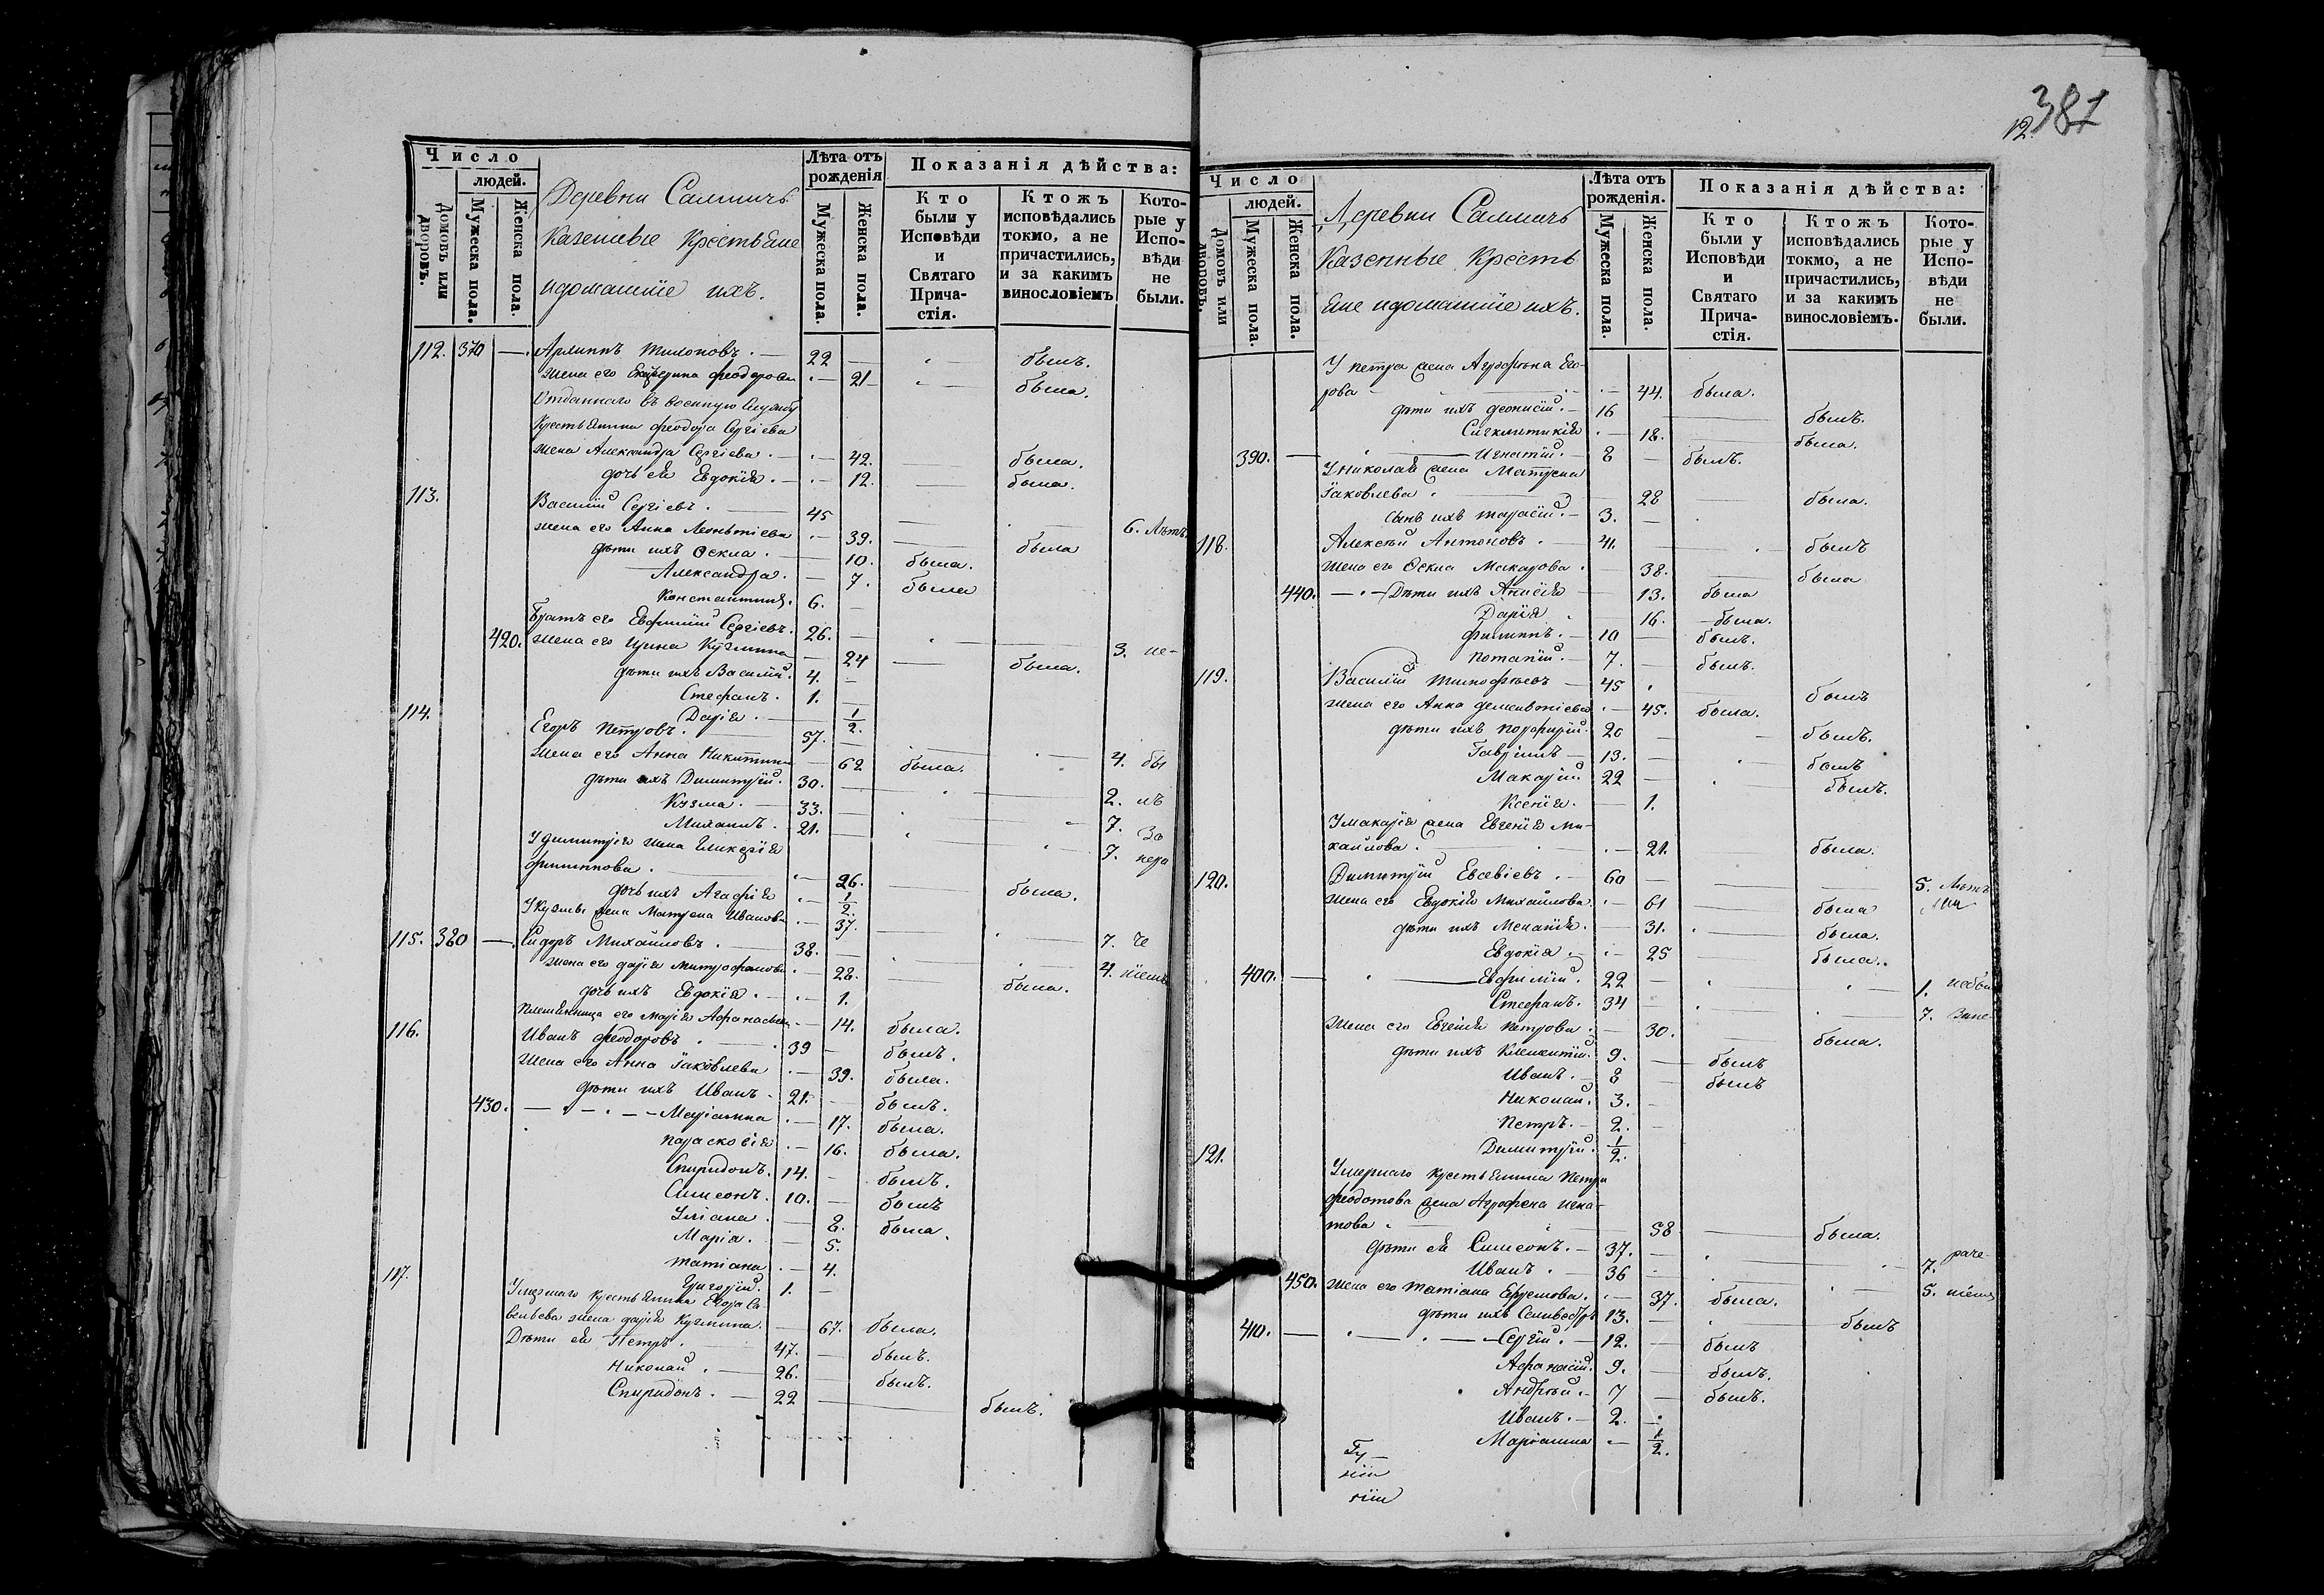 381
12.
Число
людей.
Домовъ или дворовъ.
Мужеска пола.
Женска пола.
Деревни Саммичъ
Казенные Крестьяне
и домашніе ихъ.
Лѣта отъ рожденія
Мужеска пола.
Женска пола.
Показанія дѣйства:
Кто были у Исповѣди и Святаго Прича-стія.
Ктожъ исповѣдались токмо, а не причастились, и за какимъ винословіемъ
Кото-рые у Испо-вѣди не были.
112. 370 — Филоновъ. 22 — былъ.
жена его Екатерина Феодорова — 21 — была.
Отданнаго въ военную службу
Крестьянина Феодора Сергіева
жена Александра Сергіева. — 42. — была.
дочь ея Евдокія. — 12. — была.
113. Василій Сергіевъ. 45 — 6. лѣтъ
жена его Анна Леонтіева — 39. — была
дѣти ихъ Ѳекла. — 10. была.
Александра. — 7. была
Константинъ. 6. —
Братъ его Евфимій Сергіевъ. 26. — 3. не-
420. жена его Ирина Кузмина — 24 — была.
дѣти ихъ Василій. 4. —
Стефанъ. 1. —
Дарія. — 1/2.
114. Егоръ Петровъ. 57. — 4. бы
жена его Анна Никитина — 62 была.
дѣти ихъ Димитрій. 30. — 2. лъ
Кузма. 33. — 7. За
Михаилъ. 21. — 7. нера
У Димитрія жена Гликерія
Филиппова. — 26. — была.
дочь ихъ Агафія — 1/2.
У Кузмы жена Матрена Иванова — 37. — 7. че
115. 380 — Сидоръ Михайловъ. 38. — 4. ніемъ
жена его Дарія Митрофанова — 28. — была.
дочь ихъ Евдокія. — 1.
Племянница его Марія Афанасьева — 14. была.
116. Иванъ Феодоровъ. 39 — былъ.
Жена его Анна Іаковлева — 39. была.
дѣти ихъ Иванъ. 21. — былъ.
430. — Маріанна — 17. была.
Параскевія — 16. была.
Спиридонъ. 14. — былъ.
Симеонъ. 10. — былъ
Уліана. — 8. была.
Марія. — 5.
Татіана. — 4.
Григорій. 1. —
117. Умершаго Крестьянина Егора Са
вельева жена Дарія Кузмина. — 67. была.
Дѣти ея Петръ. 47. — былъ.
Николай. 26. — былъ.
Спиридонъ. 22 — былъ.
Число
людей.
Домовъ или дворовъ.
Мужеска пола.
Женска пола.
Деревни Саммичъ
Казенные Кресть
яне и домашніе ихъ.
Лѣта отъ рожденія.
Мужеска пола.
Женска пола.
Показанія дѣйства:
Кто были у Исповѣди и Святаго Прича-стія.
Ктожъ исповѣдались токмо, а не причастились, и за какимъ винословіемъ.
Кото-рые у Испо-вѣди не были.
У Петра жена Агрофѣна Его-
рова — 44. была.
дѣти ихъ Деонисій. 16 — былъ.
Сигклитикія — 18. — была.
390. — Игнатій. 8 — былъ.
У Николая жена Матрена
Іаковлева. — 28 — была.
сынъ ихъ Тарасій. 3. —
118. Алексѣй Антоновъ. 41. — былъ
жена его Ѳекла Макарова. — 38. — была
440. — Дѣти ихъ Анисія — 13. была
Дарія — 16. была.
Филиппъ. 10 — былъ.
Потапій. 7. — былъ.
119. Василій Тимофѣевъ 45 — былъ
жена его Анна Дементіева — 45. была.
дѣти ихъ Порфирій. 20 — былъ.
Гавріилъ 13. — былъ
Макарій 22 — былъ.
Ксенія. — 1.
У Макарія жена Евгенія Ми-
хайлова. — 21. — была.
120. Димитрій Евсевіевъ. 60 — 5. лѣтъ
жена его Евдокія Михайлова. — 61 — была
дѣти ихъ Меланія. — 31. — была.
Евдокія. — 25 — была.
400. — Евфимій. 22 — 1. небы
Стефанъ. 34 — 7. Зане
жена его Евгенія Петрова. — 30. — была.
дѣти ихъ Климентій. 9. — былъ
Иванъ. 8 — былъ
Николай. 3. —
Петръ. 2. —
Димитрій. 1/2.
121. Умершаго Крестьянина Петра
Феодотова жена Агрофена Игна-
това. — 58 — была.
дѣти ея Симеонъ. 37. — 7. раче-
Иванъ. 36 — 5. ніемъ
450. жена его Татіана Ефремова. — 37. была.
дѣти ихъ Сильвестръ 13. — былъ
410. — Сергій. 12. — былъ
Афанасій. 9. — былъ.
Андрей. 7 — былъ.
Иванъ. 2. —
Маріанна — 1/2.